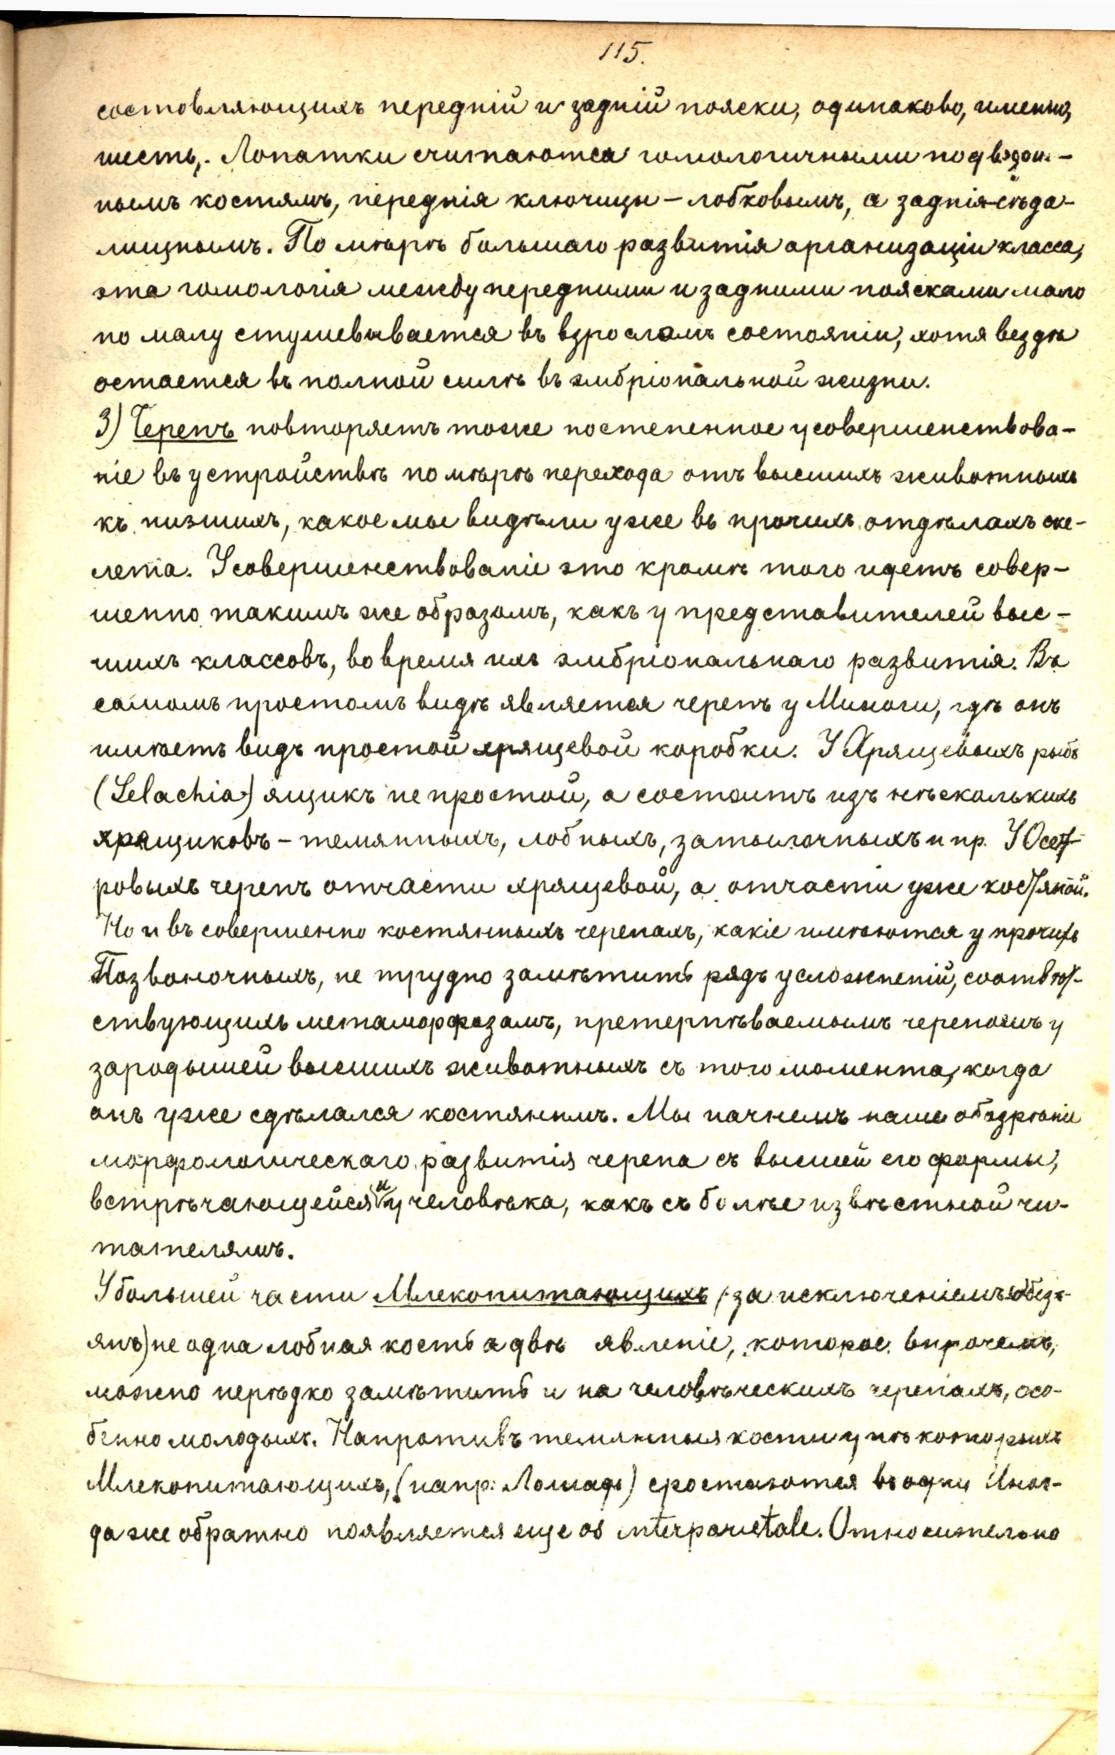 115.
составляющихъ передній и задній пояски, одинаково, именно,
шесть,. Лопатки считаются гомологичными подвздош-
нымъ костямъ, переднія ключицы – лобковымъ, а заднія-сѣда-
лищнымъ. По мѣрѣ большаго развитія организаціи класса,
эта гомологія между передними и задними поясками мало
по малу стушевывается въ взросломъ состояніи, хотя вездѣ
остается въ полной силѣ въ эмбріональной жизни.
3) Черепъ повторяетъ тоже постепенное усовершенствова-
ніе въ устройствѣ по мѣрѣ перехода отъ высшихъ животныхъ
къ низшихъ, какое мы видѣли уже въ прочихъ отдѣлахъ ске-
лета. Усовершенствованіе это кромѣ того идетъ совер-
шенно такимъ же образомъ, какъ у представителей выс-
шихъ классовъ, во время ихъ эмбріональнаго развитія. Въ
самомъ простомъ видѣ является черепъ у Миноги, гдѣ онъ
имѣетъ видъ простой хрящевой коробки. У Хрящевыхъ рыбъ
(Selachia) ящикъ не простой, а состоитъ изъ нѣсколькихъ
хрящиковъ – темянныхъ, лобныхъ, затылочныхъ и пр. У Осет-
ровыхъ черепъ отчасти хрящевой, а отчасти уже костяной.
Но и въ совершенно костянныхъ черепахъ, какіе имѣются у прочихъ
Позвоночныхъ, не трудно замѣтить рядъ усложненій, соотвѣт-
ствующихъ метаморфозамъ, претерпѣваемымъ черепомъ у
зародышей высшихъ животныхъ съ того момента, когда
онъ уже сдѣлался костянымъ. Мы начнемъ наше обозрѣніе
морфологическаго развитія черепа съ высшей его формы,
встрѣчающейся и у человѣка, какъ съ болѣе извѣстной чи-
тателямъ.
У большей части Млекопитающихъ (за исключеніемъ обезь-
янъ) не одна лобная кость а двѣ явленіе, которое впрочемъ,
можно нерѣдко замѣтить и на человѣческихъ черепахъ, осо-
бенно молодыхъ. Напротивъ темянныя кости у нѣкоторыхъ
Млекопитающихъ, (напр: Лошадь) сростаются въ одну Иног-
да же обратно появляется еще os interparietale. Относительно